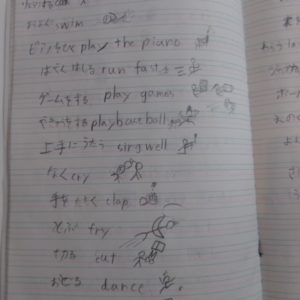 およぐ swim
ピアノをひく play the piano
はやくはしる run fast
ゲームをする play games
やきゅうをする playbaseball
上手にうたう sing well
なく cry
手をたたく clap
とぶ fry
切る cut
おどる dance